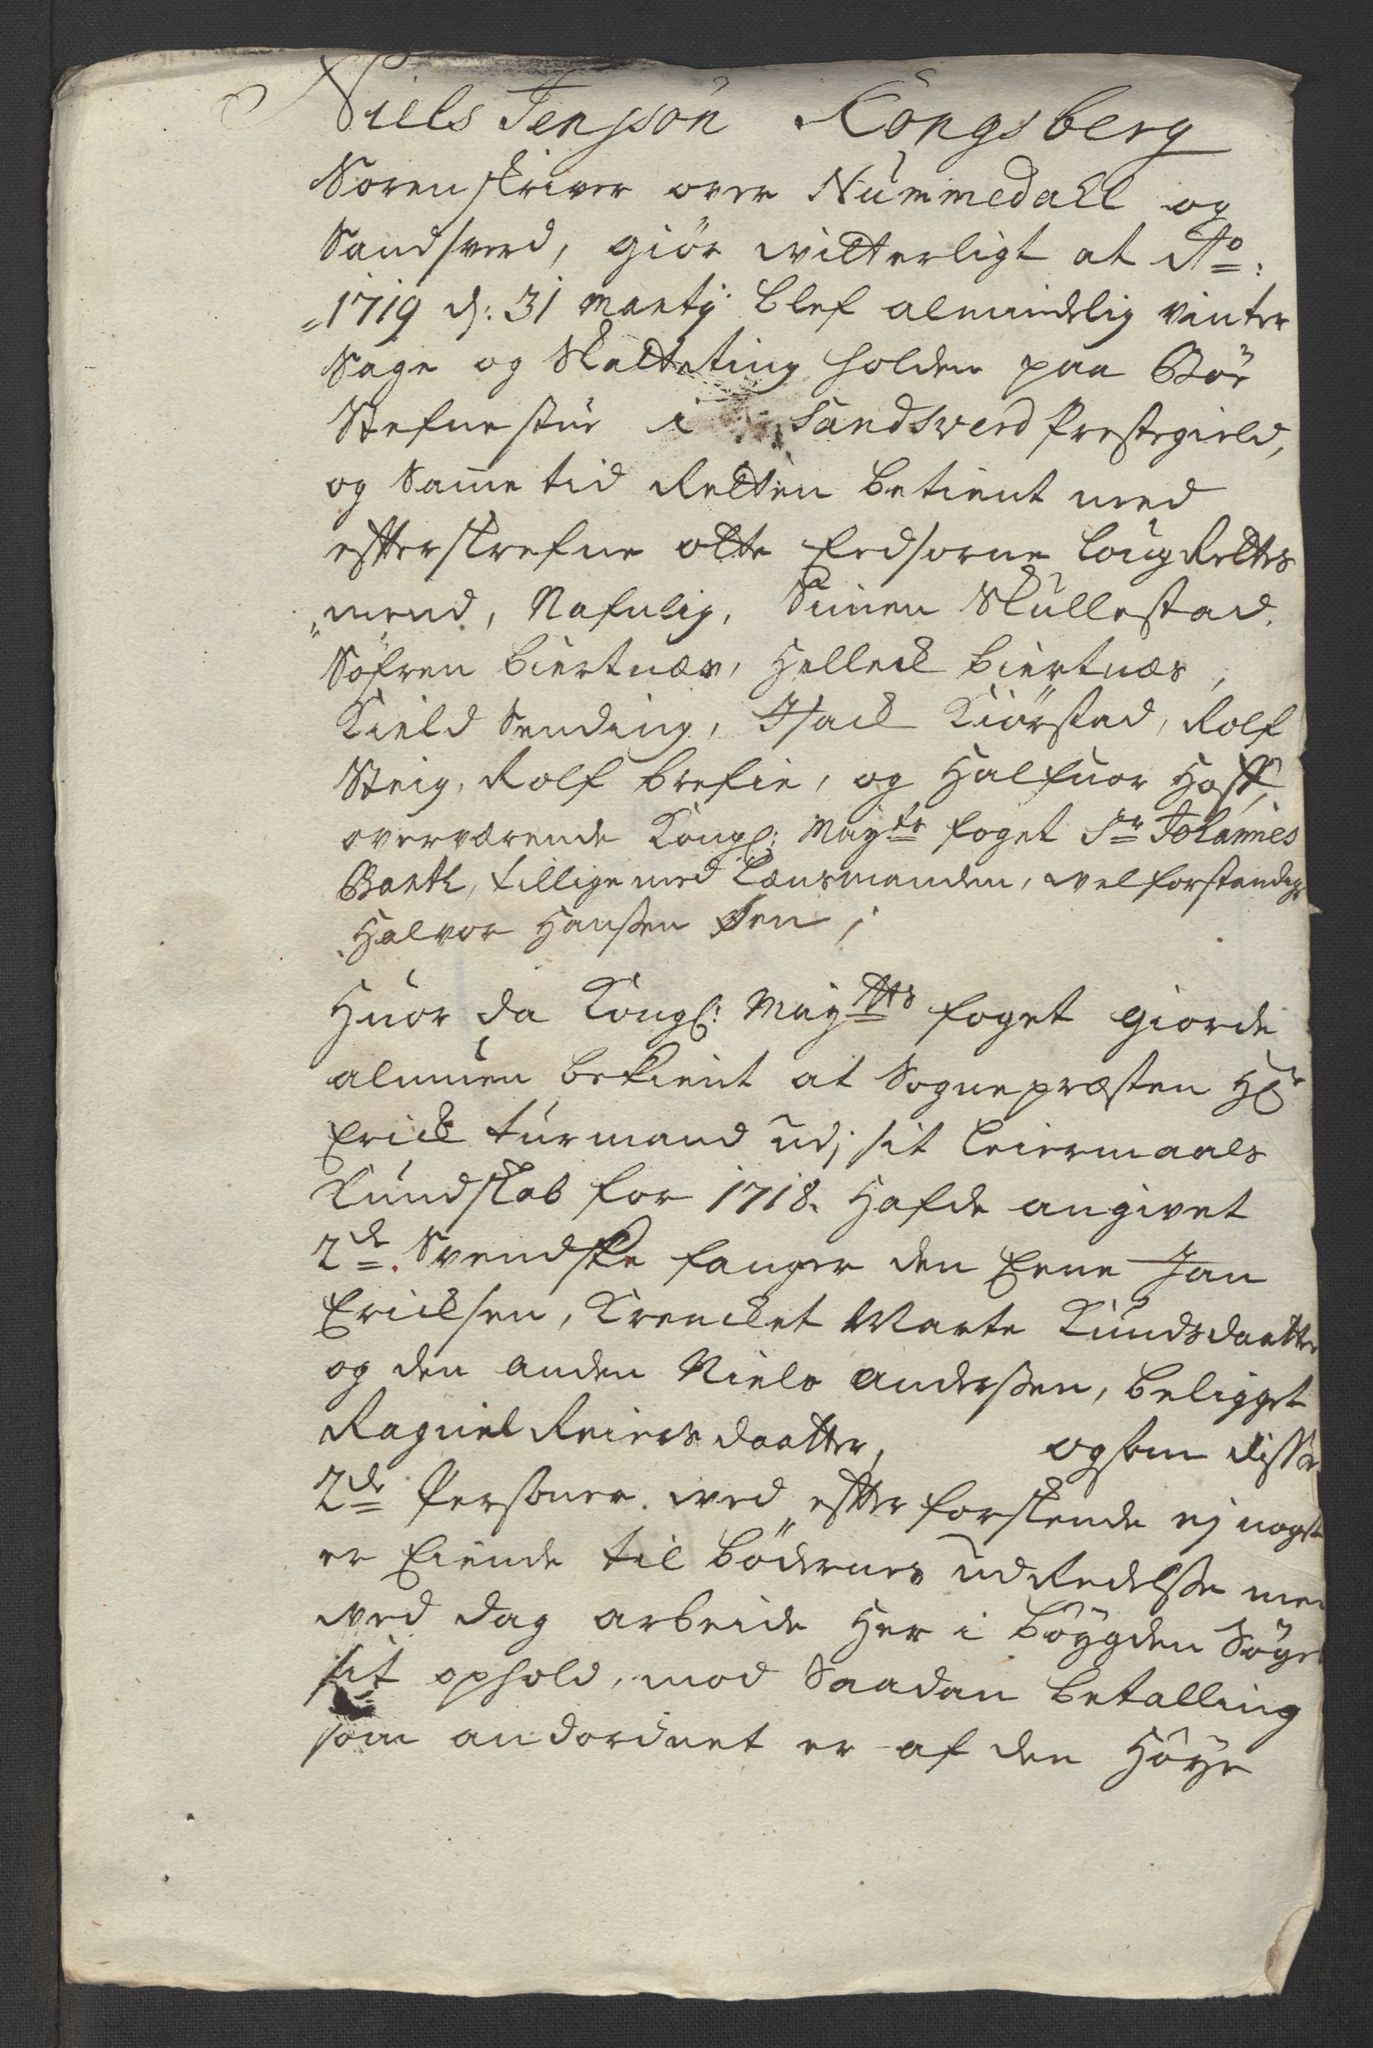 Niels Jenssön Kongsberg
Sorenskriver over Nummedall og
Sandsverd, giör witterligt at Ao:
1719 d: 31 Martij blef almindelig vinter
Sage og Skatteting holden paa
Stefnestue i Sandsverd Prestegield,
og Samme tid Retten betient med
effterskrefne otte Eedsorne LaugRettes
mend, Nafnlig, Simen Skullestad,
Söfren Biertnæs, Helleck Biertnæs,
Kield Sending, Isack Kiörstad, Rolf
Steig, Rolf Brefie, og Halfuor Hoff,
overværende Kongl: Mayts foget Sr Johannes
Barth, tillige med Lænsmanden, welforstandige
Halvor Hanssen
Huor da Kongl: Maytts foget giorde
almuen bekient at Sognepræsten Hr
Erick Turmand udj sit Leiermaals
Kundskab for 1718. Hafde angivet
2de Svendske fanger den Eene Jan
Ericksen, Krencket Marte Knudsdaatter
og den anden Niels Anderssen, beligget
Ragniel Reiersdaatter, og som disse
2de Personer wed effterforskende ej noget
er Eiende til bödernes udReedelsse men
ved dag arbeide Her i böygden Söger
sit ophold, mod Saadan betalling
som andordnet er af den Höye